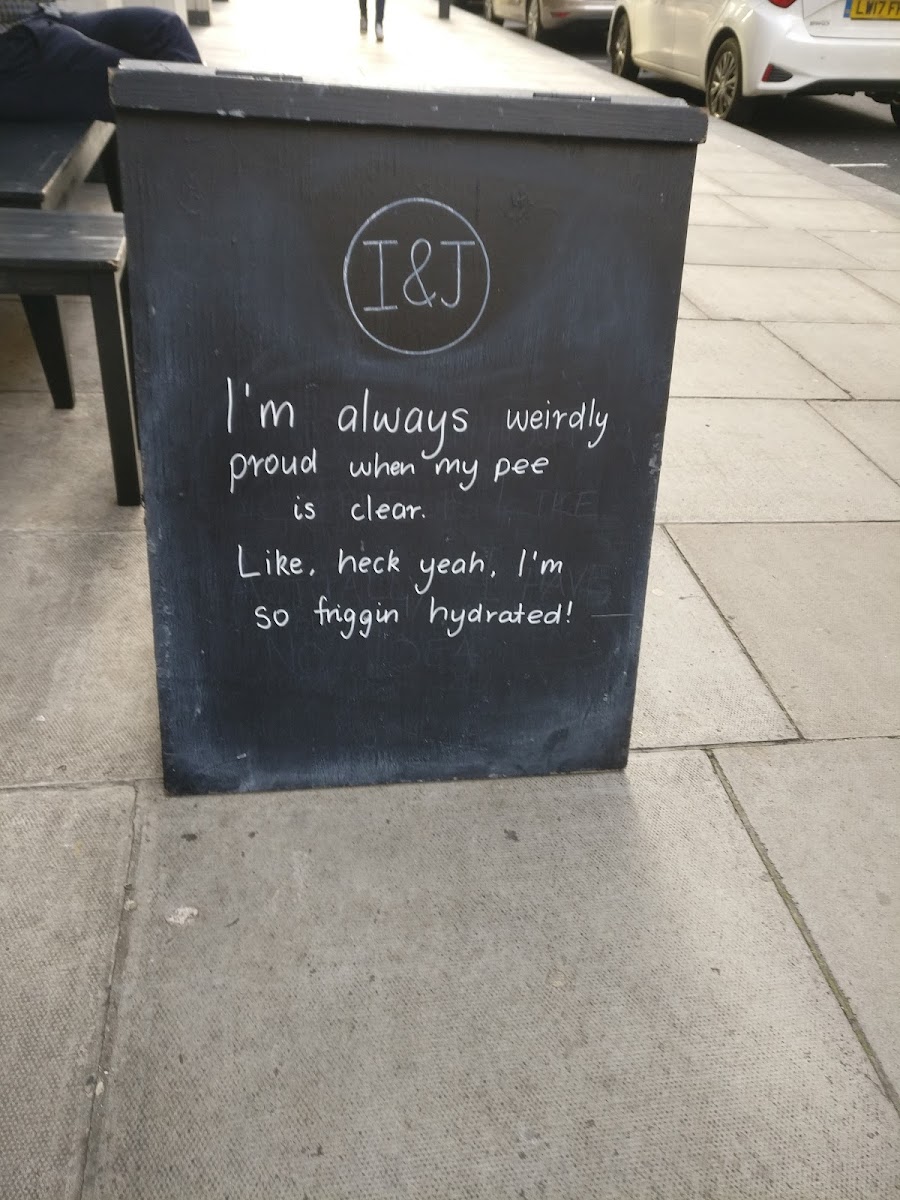 LW17 F
I&J
I'm always weirdly
proud when my pee
is clear.
Like, heck yeah, I'm
so friggin hydrated!
LIKE
HAVE